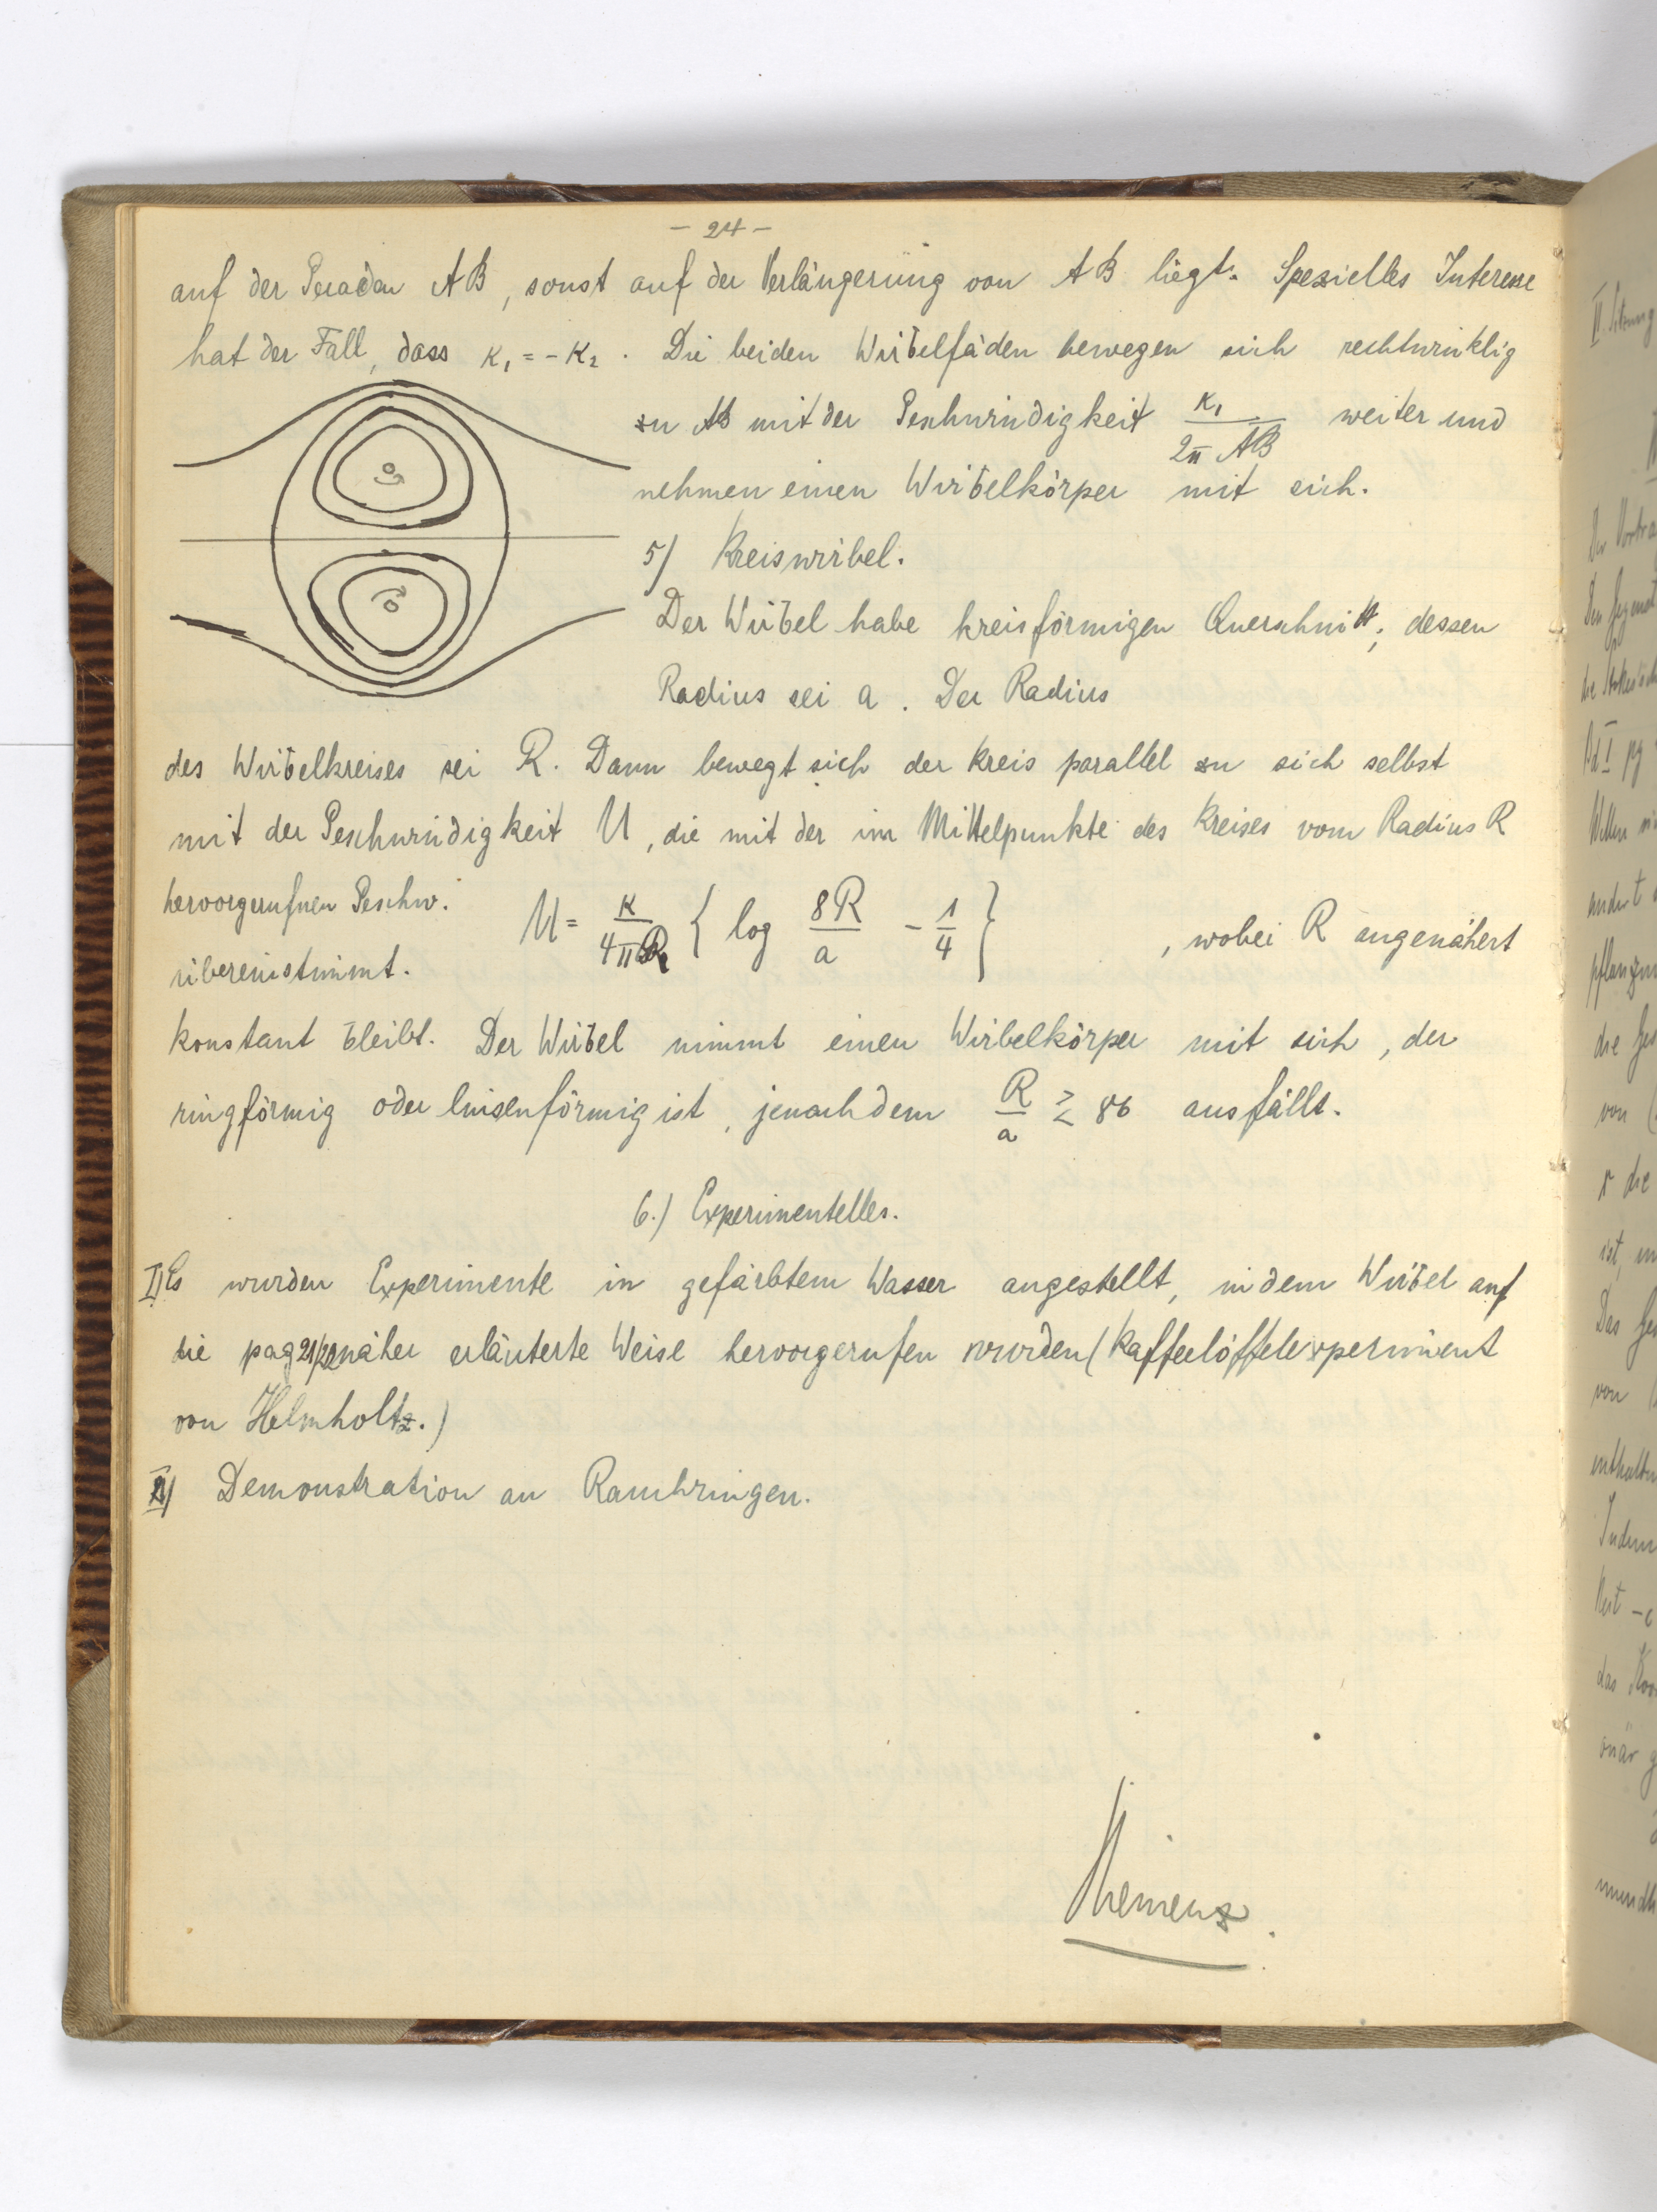 - 24 -
auf der Geraden AB, sonst auf der Verlängerung von AB liegt. Spezielles Interesse
hat der Fall, dass κ₁ = - κ₂. Die beiden Wirbelfäden bewegen sich rechtwinklig
zu AB mit der Geschwindigkeit κ₁/2π AB weiter und
nehmen einen Wirbelkörper mit sich.
5) Kreiswirbel.
Der Wirbel habe kreisförmigen Querschnitt, dessen
Radius sei a. Der Radius
des Wirbelkreises sei R. Dann bewegt sich der Kreis parallel zu sich selbst
mit der Geschwindigkeit U, die mit der im Mittelpunkte des Kreises vom Radius R
hervorgerufnen Geschw.
übereinstimmt.
U = κ/4πR { log 8R/a - 1/4 }, wobei R angenähert
konstant bleibt. Der Wirbel nimmt einen Wirbelkörper mit sich, der
ringförmig oder linsenförmig ist, jenachdem R/a ≷ 86 ausfällt.
6.) Experimentelles.
I) Es wurden Experimente in gefärbtem Wasser angestellt, in dem Wirbel auf
die pag 21/22 näher erläuterte Weise hervorgerufen wurden (Kaffeelöffelexperiment
von Helmholtz.)
II) Demonstration an Rauchringen.
Thiemenz.